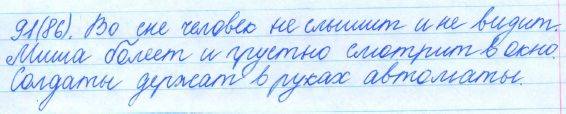 91(86). Во сне человек не слышит и не видит.
Миша болеет и грустно смотрит в окно.
Солдаты держат в руках автоматы.